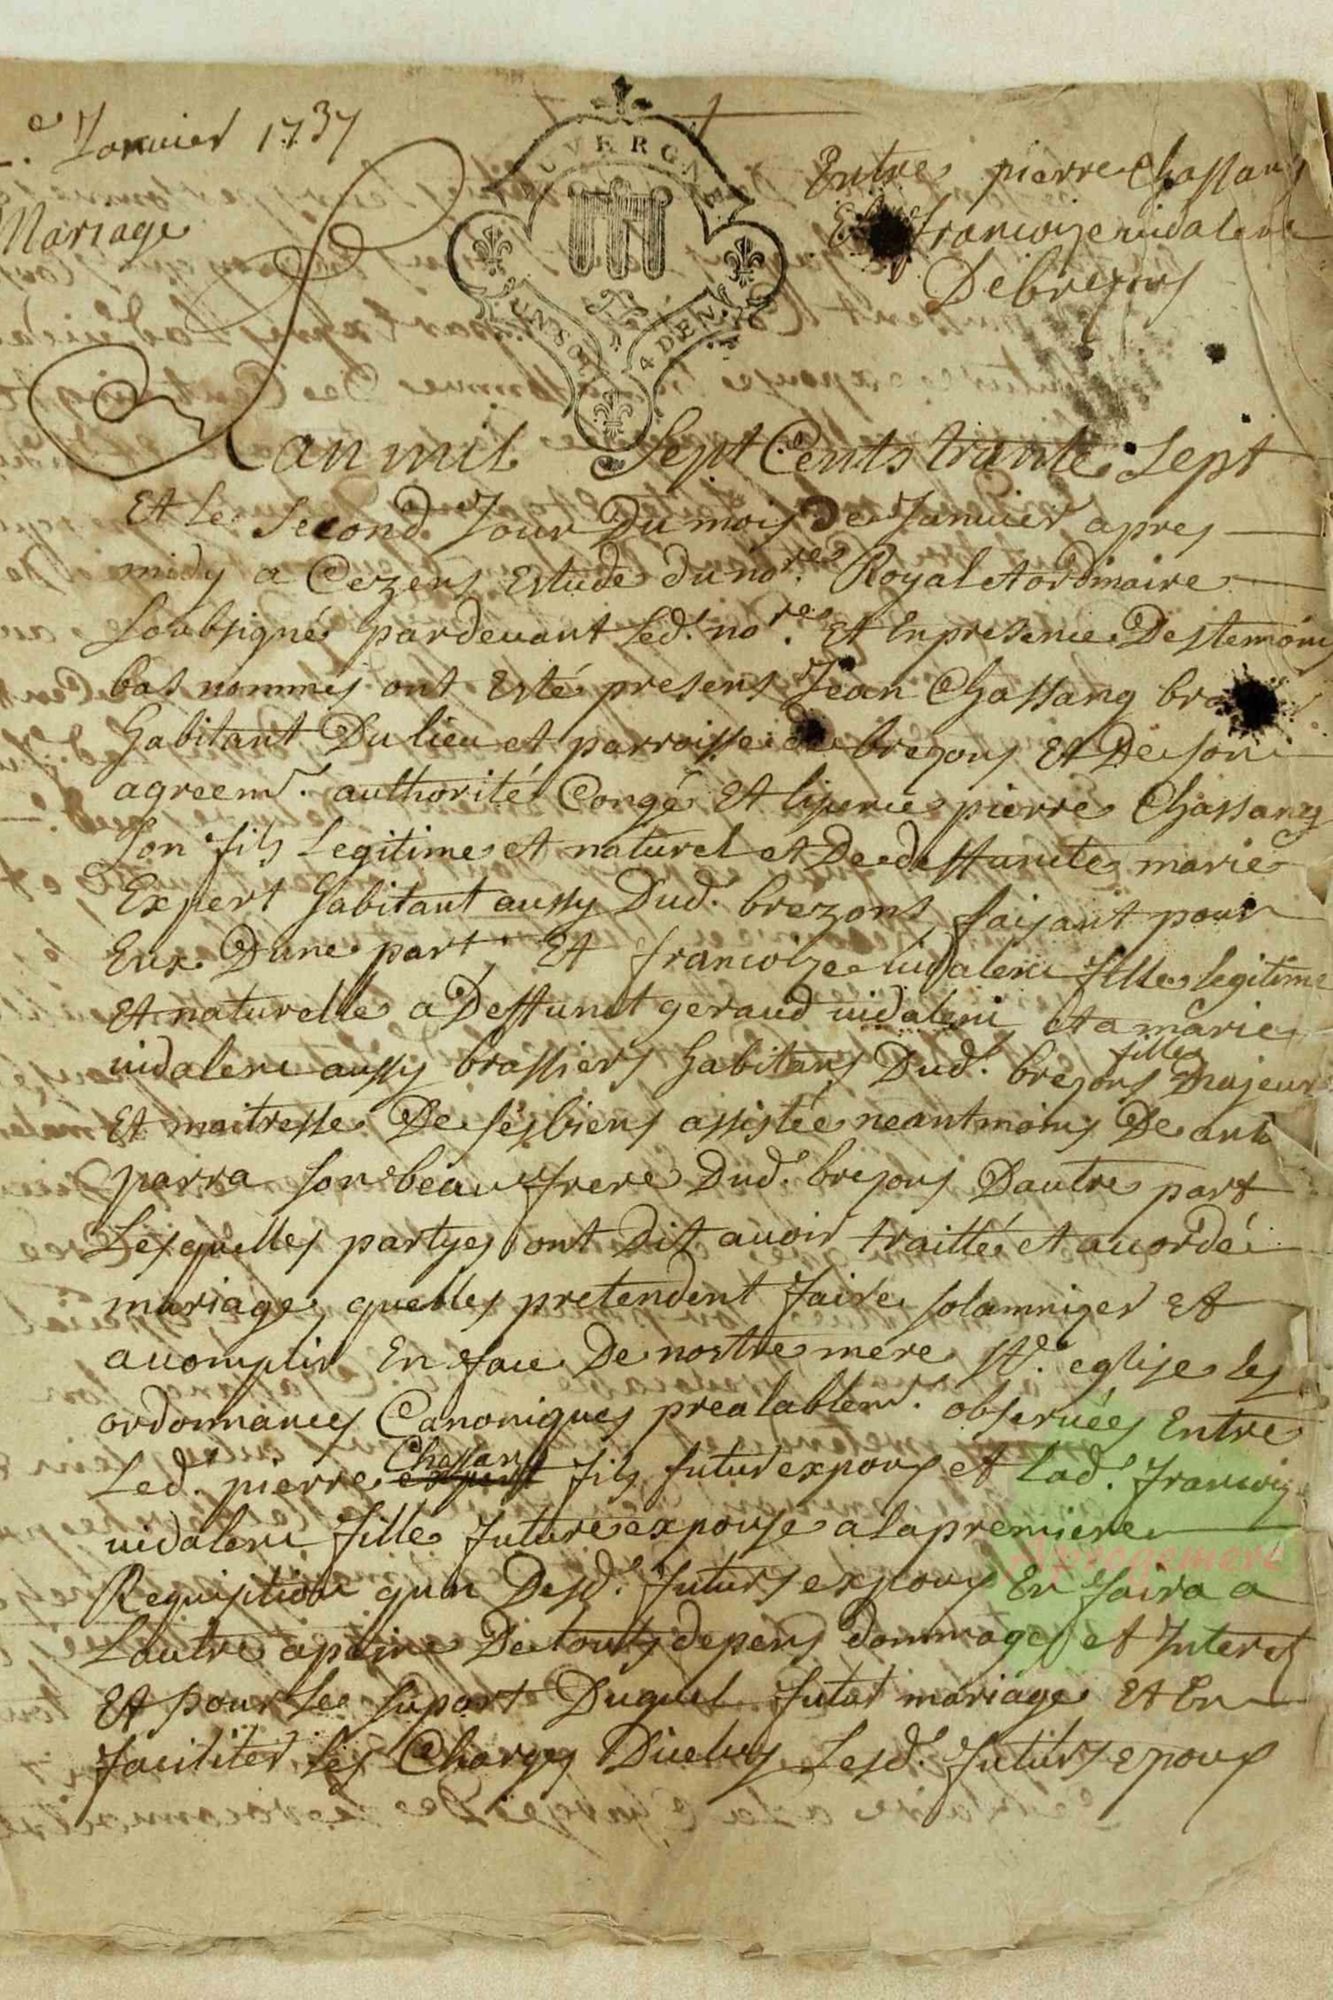 2.e Janvier 1737
Mariage
AUVERGNE
UN SOL 4 DEN.
Entre pierre Chassang
Et francoize vidalenc
De brezons
Lan mil Sept Cents trante Sept
Et le Second Jour Du mois De Janvier apres
midy a Cezens Estude du no.re Royal et ordinaire
Soubsigné pardevant led. no.re Et En presence Des temoins
bas nommés ont Esté presens Jean Chassang
habitant Du lieu et parroisse de brezons Et De son
agreem.t authorité Congé Et lisence pierre Chassang
Son fils Legitime et naturel et De deffuncte marie
Expert habitant aussy Dud. brezons, faisant pour
Eux Dune part, Et francoize vidalenc fille legitime
Et naturelle a Deffunct geraud vidalenc et a marie
vidalenc aussy brassiers habitans Dud. brezons fille majeure
Et maitresse De ses biens assistée neantmoins De
parra son beau frere Dud. brezons Dautre part
Lesquelles partyes ont Dit avoir traitté et accordé
mariage quelles pretendent faire solamnizer Et
accomplir En face De nostre mere Ste. eglise les
ordonnances Canoniques prealablem.t observées Entre
Led. pierre Chassang fils futur expoux et lad. francoize
vidalenc fille future expouse a la premiere
Requisition quun Desd. futurs expoux En faira a
Lautre a peine De touts depens dommages et Interets
Et pour le suport Duquel futur mariage Et En
faciliter les Charges Diceluy Lesd. futurs epoux
Aprogemere